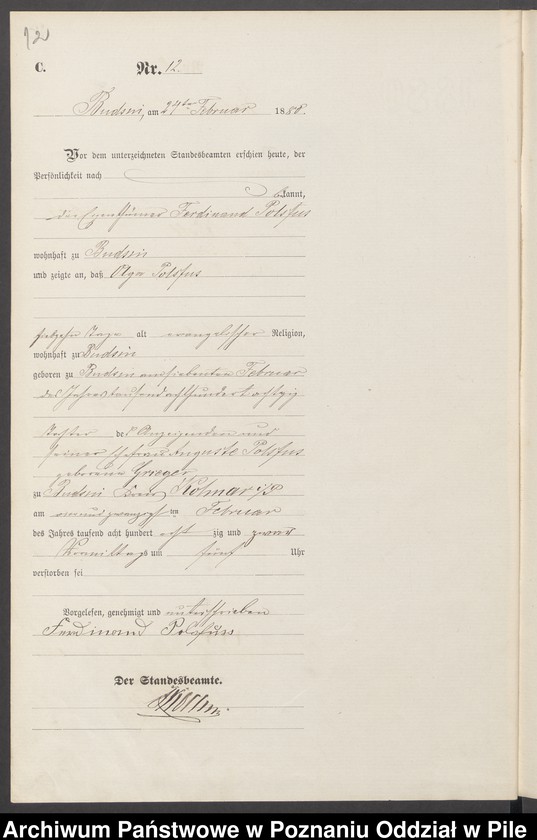 12
C. Nr. 12.
Budsin, am 24ten Februar 1880.
Vor dem unterzeichneten Standesbeamten erschien heute, der
Persönlichkeit nach
kannt,
der Eigenthümer Ferdinand Polsfus
wohnhaft zu Budsin
und zeigte an, daß Olga Polsfus
siebzehn Tage alt evangelischer Religion,
wohnhaft zu Budsin
geboren zu Budsin am siebenten Februar
des Jahres tausend achthundert achtzig
Tochter des Anzeigenden und
seiner Ehefrau Auguste Polsfus
geborene Grieger
zu Budsin Kreis Kolmar i/P
am Februar
des Jahres tausend acht hundert acht zig und zwar
Vormittags um fünf Uhr
verstorben sei
Vorgelesen, genehmigt und unterschrieben
Ferdinand Polsfuss
Der Standesbeamte.
Archiwum Państwowe w Poznaniu Oddział w Pile